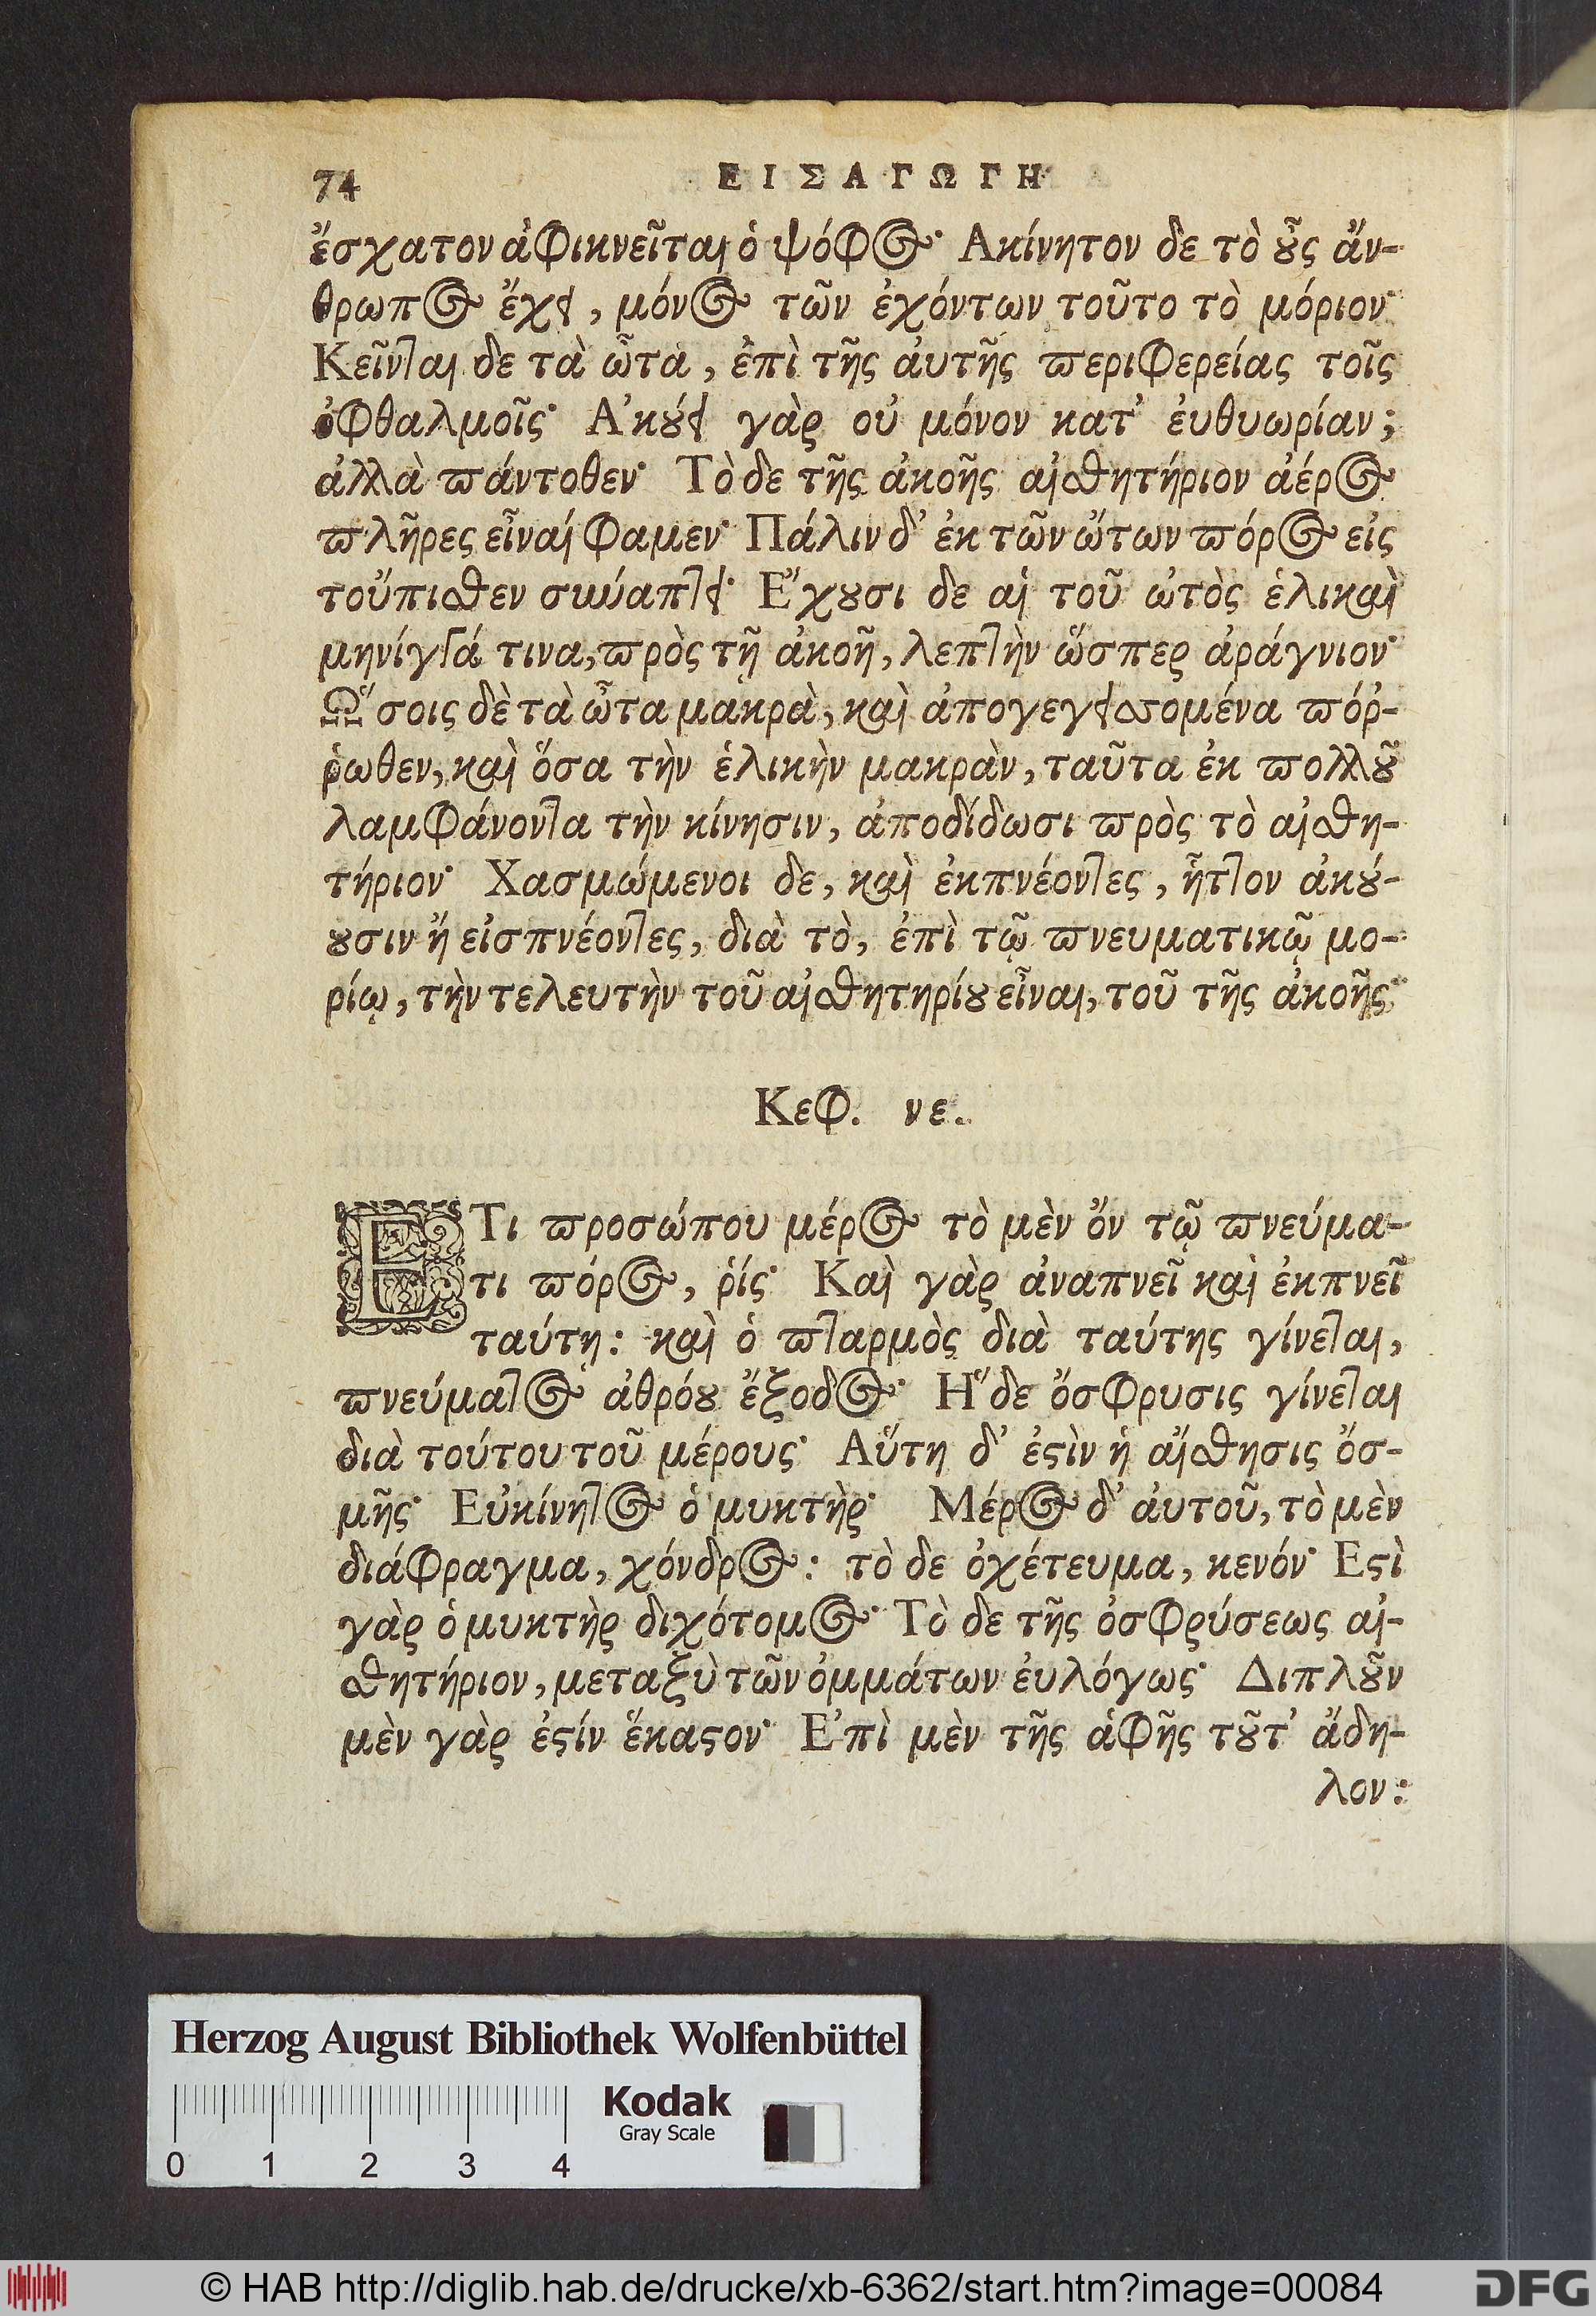 74 ΕΙΣΑΓΩΓΗ
ἔσχατον ἀφικνεῖται ὁ ψόφος· Ακίνητον δε τὸ ȣ̓͂ς ἄν-
θρωπος ἔχει, μόνος τῶν ἐχόντων τοῦτο τὸ μόριον·
Κεῖνται δε τὰ ὦτα, ἐπὶ τῆς ἀυτῆς ϖεριφερείας τοῖς
ὀφθαλμοῖς· Α᾿κȣ́ει γὰρ οὐ μόνον κατ᾿ ἐυθυωρίαν;
ἀλλὰ ϖάντοθεν· Τὸ δε τῆς ἀκοῆς αἰσθητήριον ἀέρος
ϖλῆρες εἶναί φαμεν· Πάλιν δ᾿ ἐκ τῶν ὤτων ϖόρος εἰς
τοὔπισθεν συνάπτει· Ε῎χȣσι δε αἱ τοῦ ὠτὸς ἑλικαὶ
μηνίγγά τινα, ϖρὸς τῇ ἀκοῇ, λεπτὴν ὥσπερ ἀράγνιον·
Ω῞σοις δὲ τὰ ὦτα μακρὰ, καὶ ἀπογεγεισομένα ϖόῤ-
ῥωθεν, καὶ ὅσα τὴν ἑλικὴν μακρὰν, ταῦτα ἐκ ϖολλȣ͂
λαμφάνοντα τὴν κίνησιν, ἀποδίδωσι ϖρὸς τὸ αἰσθη-
τήριον· Χασμώμενοι δε, καὶ ἐκπνέοντες, ἧττον ἀκȣ́-
ȣσιν ἤ εἰσπνέοντες, διὰ τὸ, ἐπὶ τῷ ϖνευματικῷ μο-
ρίῳ, τὴν τελευτὴν τοῦ αἰσθητηρίȣ εἶναι, τοῦ τῆς ἀκοῆς·
Κεφ. νε.
ΕΤι ϖροσώπου μέρος τὸ μὲν ὄν τῷ ϖνεύμα-
τι ϖόρος, ῥίς· Καὶ γὰρ ἀναπνεῖ καὶ ἐκπνεῖ
ταύτῃ: καὶ ὁ ϖταρμὸς διὰ ταύτης γίνεται,
ϖνεύματος ἀθρόȣ ἔξοδος· Η῞δε ὄσφρυσις γίνεται
διὰ τούτου τοῦ μέρους· Αὕτη δ᾿ ἐστὶν ἡ αἴσθησις ὄσ-
μῆς· Εὐκίνητος ὁ μυκτὴρ· Μέρος δ᾿ ἀυτοῦ, τὸ μὲν
διάφραγμα, χόνδρος: τὸ δε ὀχέτευμα, κενόν· Εστὶ
γὰρ ὁ μυκτὴρ διχότομος· Τὸ δε τῆς ὀσφρύσεως αἰ-
σθητήριον, μεταξὺ τῶν ὀμμάτων ἐυλόγως· Διπλȣ͂ν
μὲν γὰρ ἐστίν ἕκαστον· Ε᾿πὶ μὲν τῆς ἁφῆς τȣ͂τ᾿ ἄδη-
λον:
Herzog August Bibliothek Wolfenbüttel
Kodak
Gray Scale
0 1 2 3 4
© HAB http://diglib.hab.de/drucke/xb-6362/start.htm?image=00084
DFG